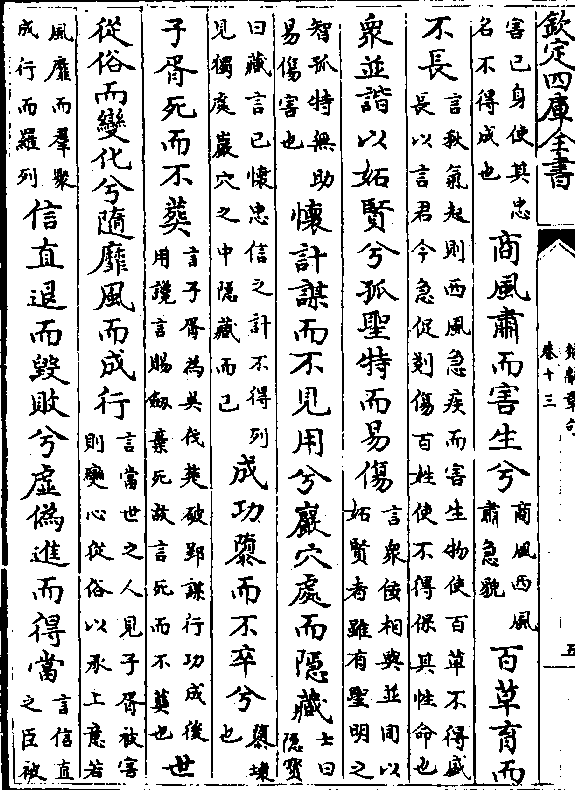 欽定四庫全書
楚辭章句
卷十三
五
害己身使其忠
名不得成也
商風肅而害生兮
商風西風
肅急貌
百草育而
不長
言秋氣起則西風急疾而害生物使百草不得盛
長以言君令急促剗傷百姓使不得保其性命也
衆並諧以妬賢兮孤聖特而易傷
言衆佞相與並同以
妬賢者雖有聖明之
智孤特無助
易傷害也
懷計謀而不見用兮巖穴處而隱藏
士曰
隱寳
曰藏言已懷忠信之計不得列
見獨處巖穴之中隱藏而已
成功隳而不卒兮
隳壊
也
子胥死而不葬
言子胥為吳伐楚破郢謀行功成後
用讒言賜劒棄死故言死而不葬也
世
從俗而變化兮隨靡風而成行
言當世之人見子胥被害
則變心從俗以承上意若
風靡而羣聚
成行而羅列
信直退而毀敗兮虛偽進而得當
言信直
之臣被